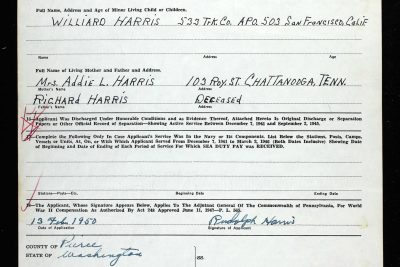 Full Name, Address and Age of Minor Living Child or Children.
WILLIARD HARRIS 533 TrK. Co. APO. 503 SAN FRANCISCO, CALIF
Name Address Age
Full Name of Living Mother and Father and Address.
Mrs. ADDIE L. HARRIS 103 ROY. ST. CHATTANOOGA, TENN.
Mother's Name Address
RICHARD HARRIS DECEASED
Father's Name Address
Applicant Was Discharged Under Honorable Conditions and as Evidence Thereof, Attached Hereto is Original Discharge or Separation
Papers or Other Official Record of Separation—Showing Active Service Between December 7, 1941 and September 2, 1945.
Complete the Following Only in Case Applicant's Service Was in the Navy or Its Components. List Below the Stations, Posts, Camps,
Vessels or Units, At, On, or With Which Applicant Served From December 7, 1941 to March 2, 1946 (Both Dates Inclusive) Showing Date
of Beginning and Date of Ending of Each Period of Service For Which SEA DUTY PAY was RECEIVED.
Stations—Posts—Etc. Beginning Date Ending Date
The Applicant, Whose Signature Appears Below, Applies To The Adjutant General Of The Commonwealth of Pennsylvania, For
World War II Compensation As Authorized By Act 248 Approved June 11, 1947—P. L. 565.
13 Feb 1950 Rudolph Harris
Date of Application Signature of Applicant
COUNTY OF Pierce
STATE OF Washington SS.